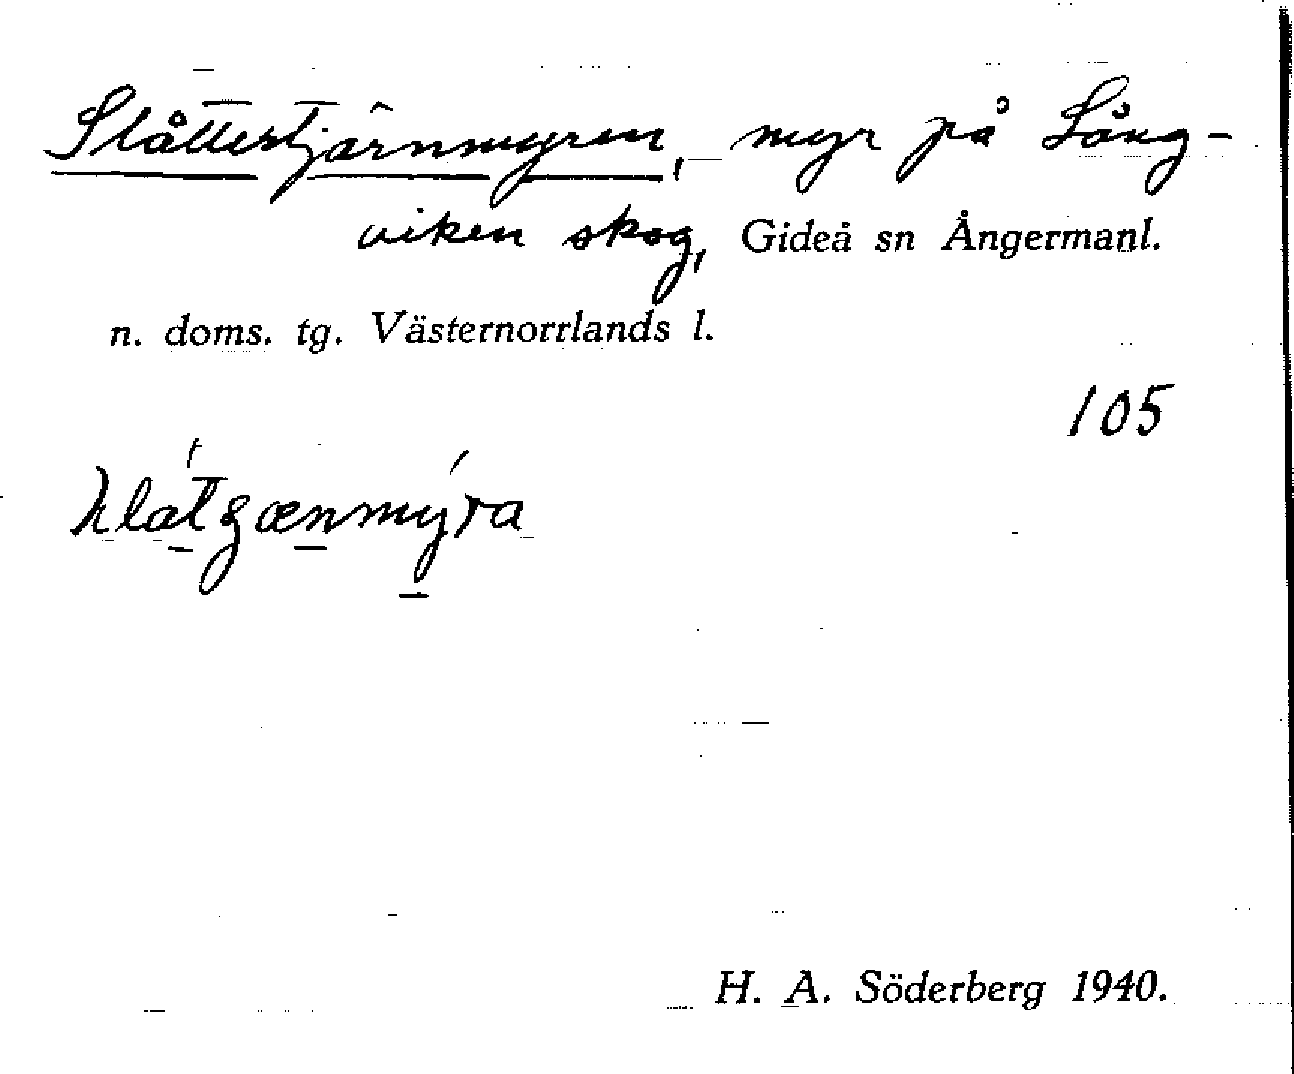 Slåttestjärnmyren, myr på Lång-
viken skog, Gideå sn Ångermanl.
n. doms. tg. Västernorrlands l.
105
H. A. Söderberg 1940.